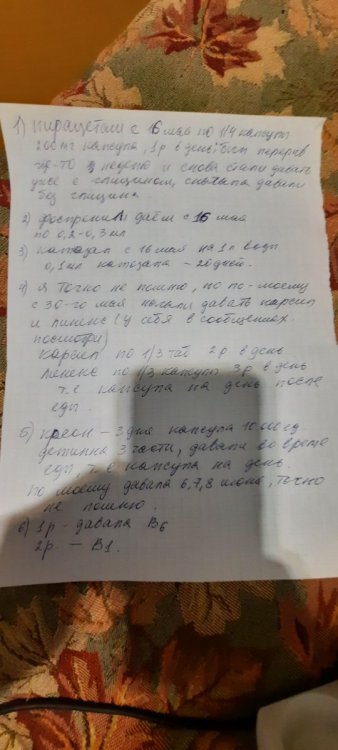 1) Пирацетам с 16 мая по 1/4 капсулы
200 мг капсула, 1 р в день, был перерыв
где-то неделю и снова стали давать
уже с глицином, сначала давали
без глицина.
2) даём с 16 мая
по 0,2-0,3 мл
3) катозал с 16 мая на 1 л воды
0,1 мл катозала - 20 дней.
4) я точно не помню, но по-моему
с 30-го мая начали давать карсил
и линекс (у себя в сообщениях
посмотри)
карсил по 1/3 таб 2 р в день
линекс по 1/3 капсулы 3 р в день
т.е капсула на день после
еды.
5) креон - 3 дня капсула 10 000 ед
делила 3 части, давала во время
еды, т.е капсула на день.
По моему давала 6,7,8 июня, точно
не помню.
6) 1 р - давала В6
2 р. - В1.